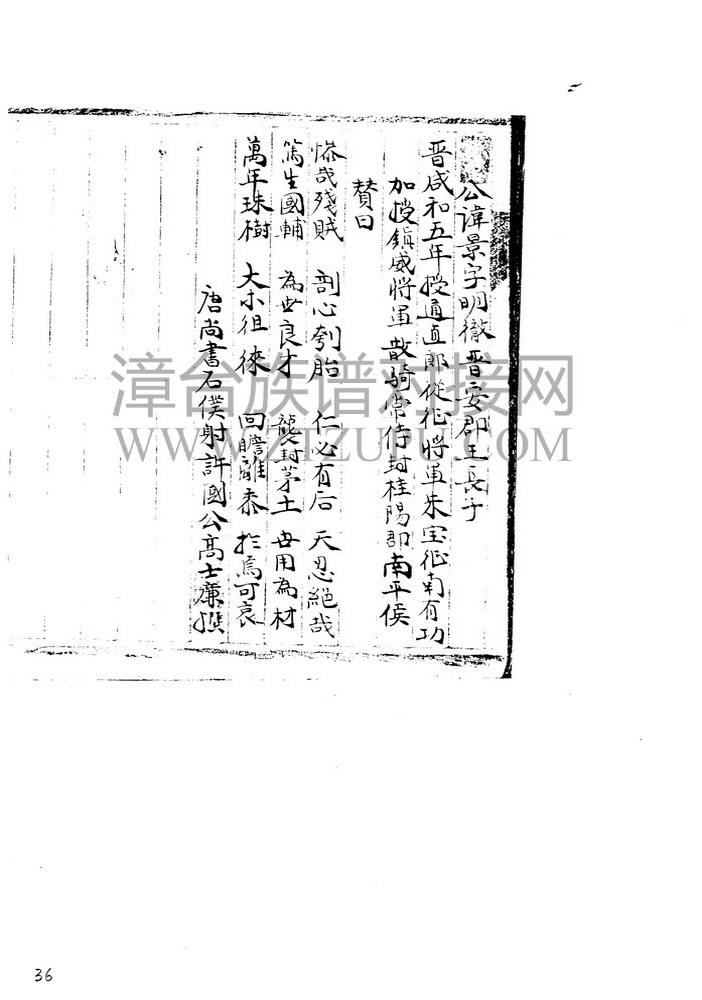 公諱景字明徹晋安郡王長子
晋咸和五年授通直郎從征將軍朱宝征南有功
加授鎮威將軍散騎常侍封桂陽郡南平侯
賛曰
慘哉殘賊 剖心刳胎 仁必有后 天忍絕哉
篤生國輔 為世良才 襲封茅土 世用為材
萬年珠樹 大小徂徠 回瞻離黍 於焉可哀
唐尚書右僕射許國公高士廉撰
漳台族谱对接网
WWW.ZTZUPU.COM
36